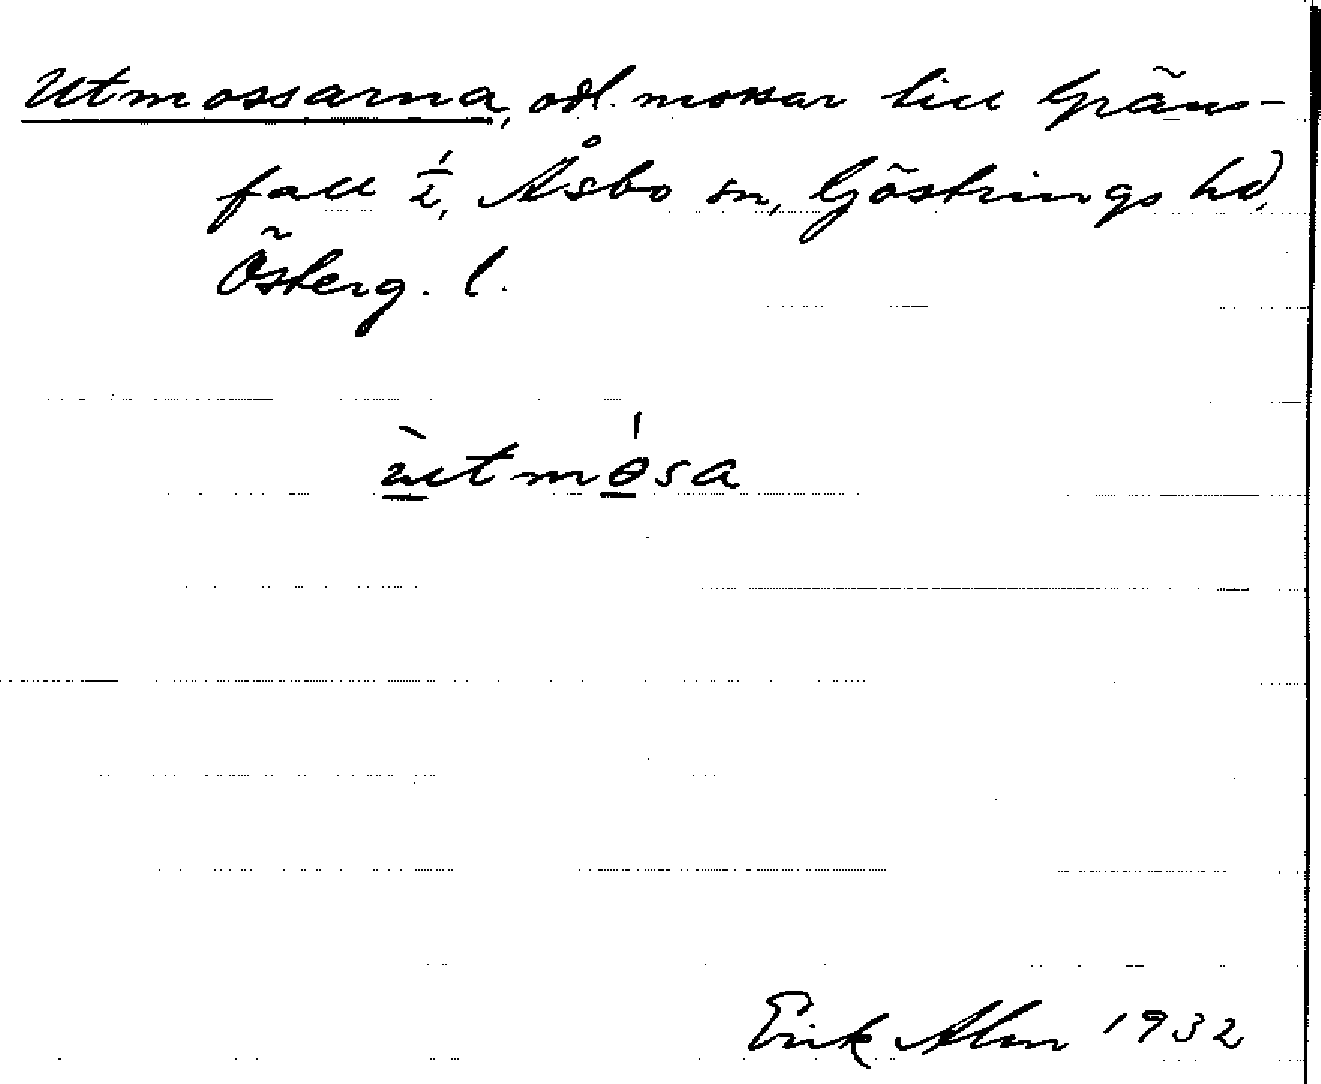 Utmossarna, odl. mossar till Gräns-
fall ½, Åsbo sn, Göstrings hd,
Österg. l.
ùtmɵ́sa
Erik Alm 1932